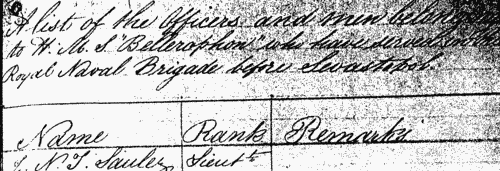 A list of the Officers and men belonging
to H. M. S. "Bellerophon" who have served in the
Royal Naval Brigade before Sevastopol.
Name Rank Remarks
N. T. Lieut^t